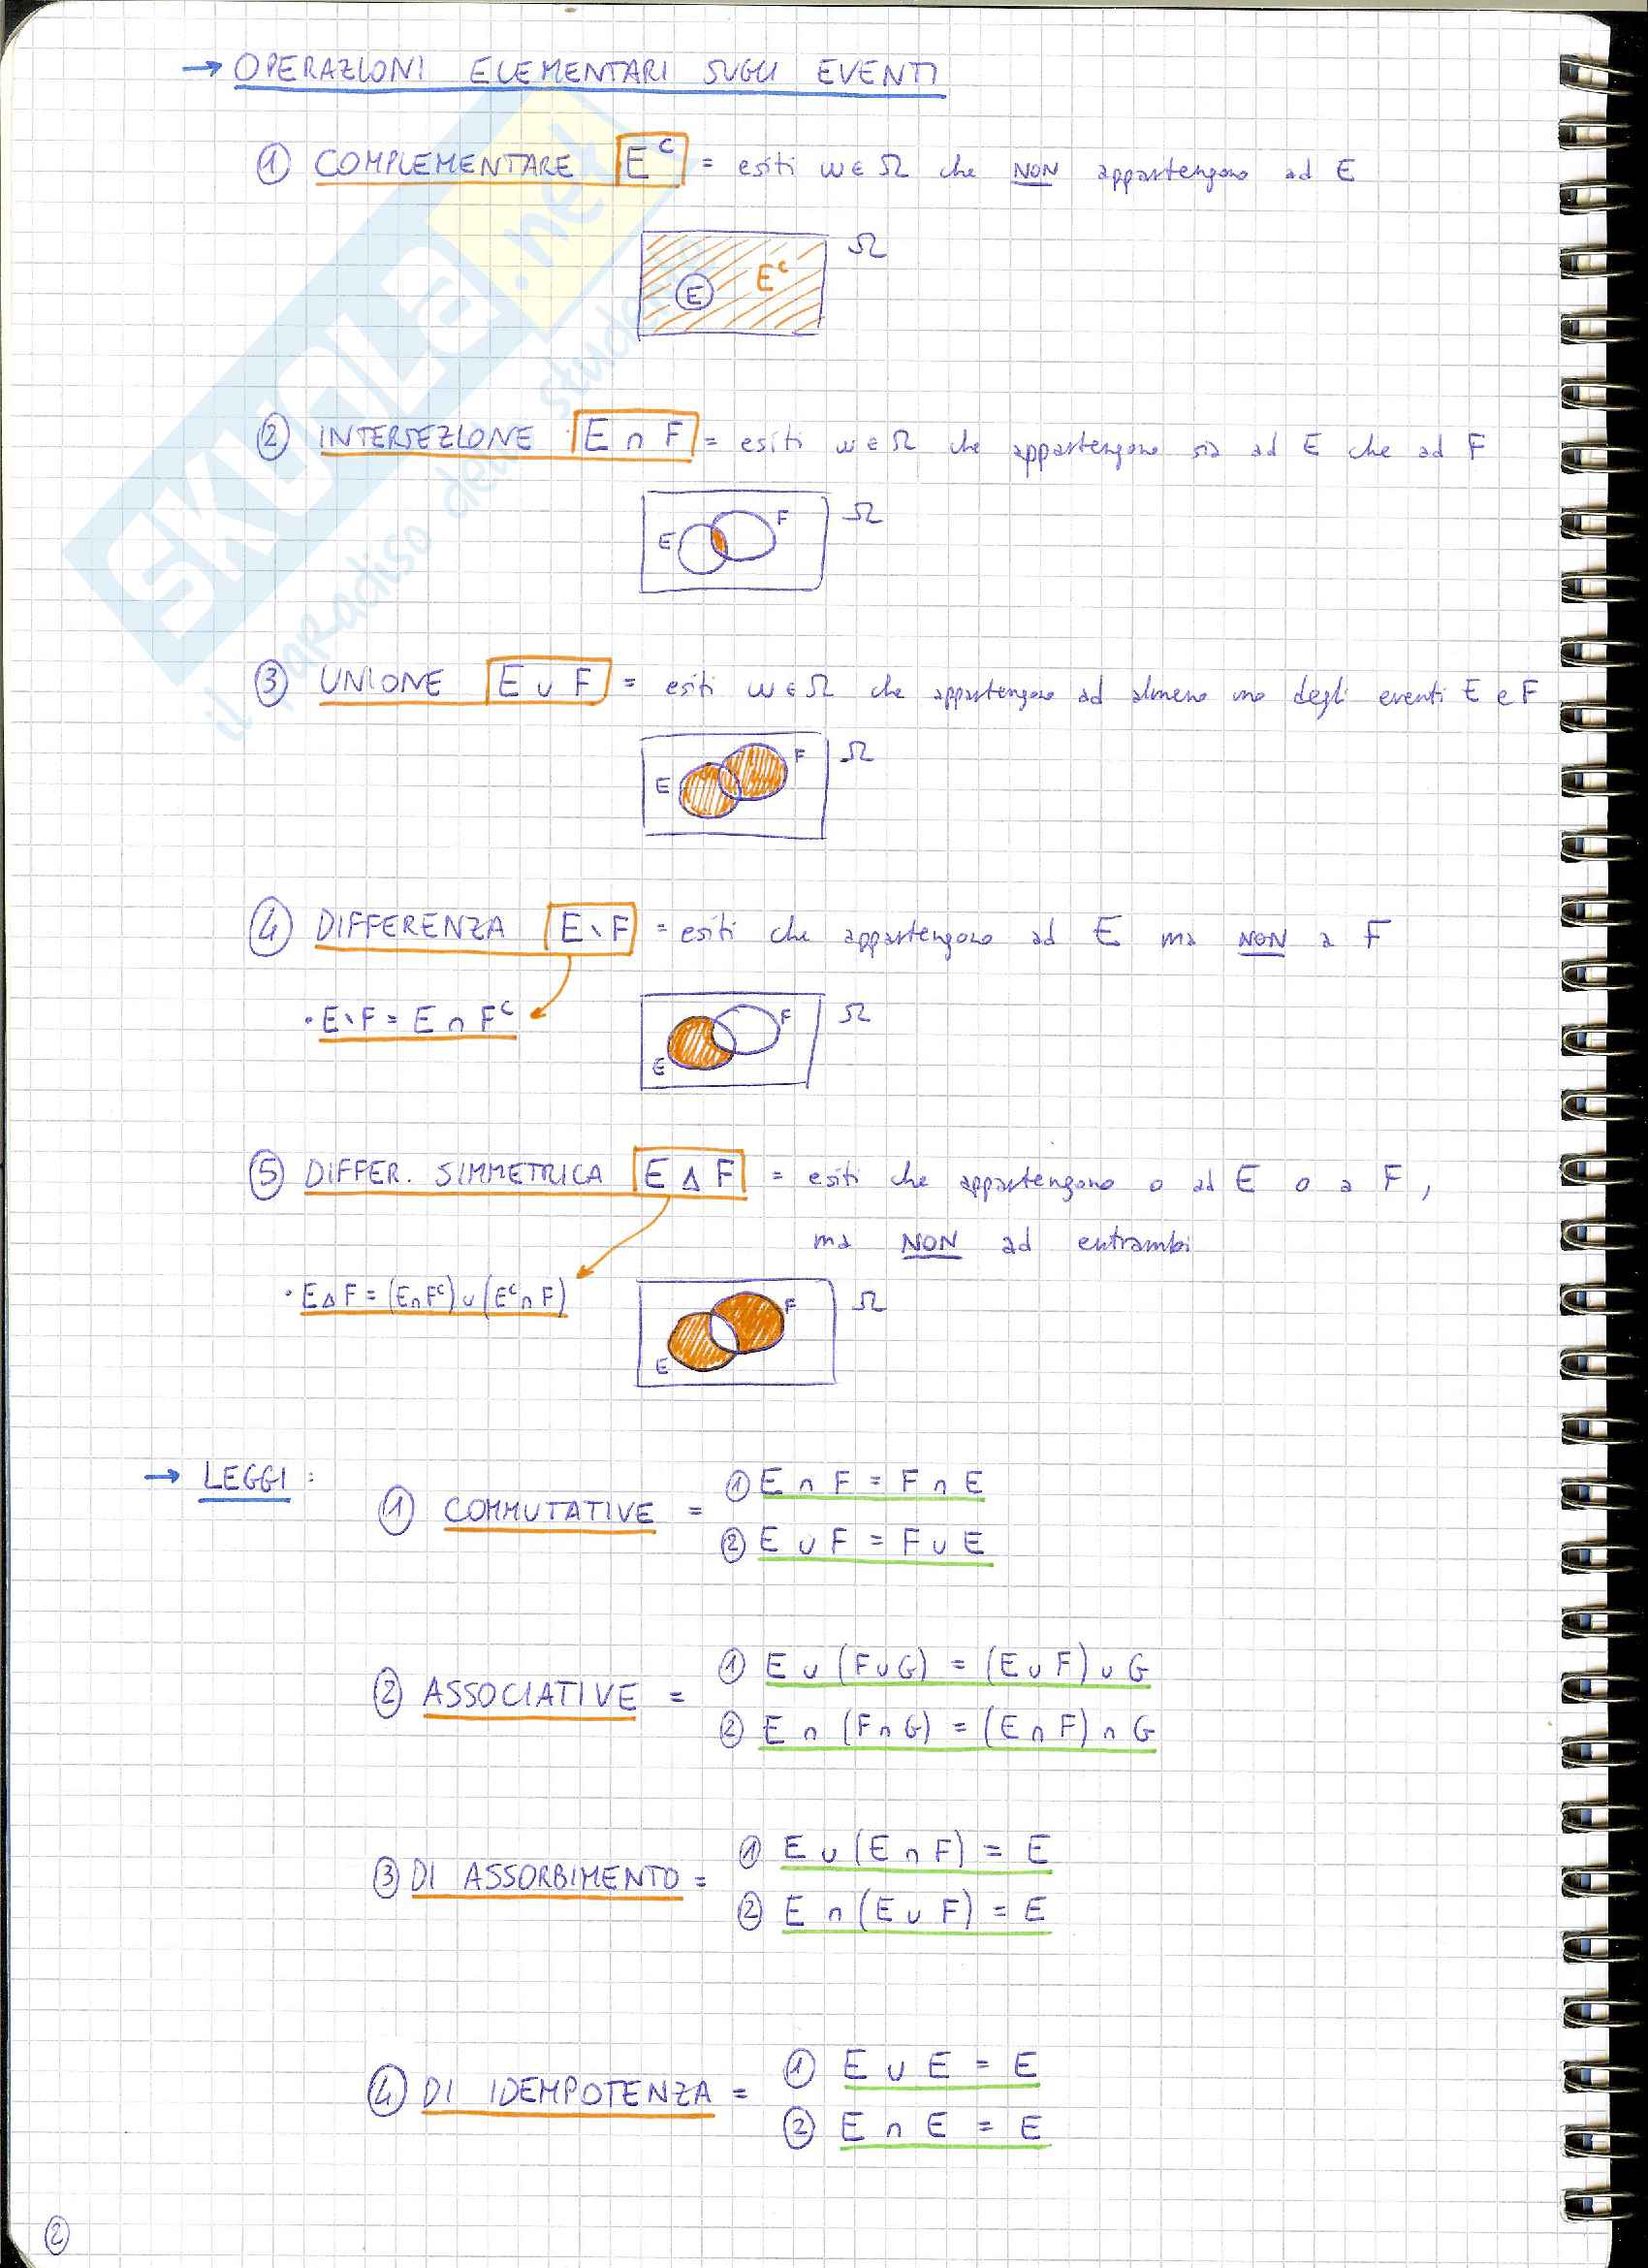 → OPERAZIONI ELEMENTARI SUGLI EVENTI
① COMPLEMENTARE Eᶜ = esiti ω ∈ Ω che NON appartengono ad E
Ω
E Eᶜ
② INTERSEZIONE E ∩ F = esiti ω ∈ Ω che appartengono sia ad E che ad F
E F Ω
③ UNIONE E ∪ F = esiti ω ∈ Ω che appartengono ad almeno uno degli eventi E e F
E F Ω
④ DIFFERENZA E \ F = esiti che appartengono ad E ma NON a F
• E \ F = E ∩ Fᶜ
E F Ω
⑤ DIFFER. SIMMETRICA E Δ F = esiti che appartengono o ad E o a F,
ma NON ad entrambi
• E Δ F = (E ∩ Fᶜ) ∪ (Eᶜ ∩ F)
E F Ω
→ LEGGI:
① COMMUTATIVE =
① E ∩ F = F ∩ E
② E ∪ F = F ∪ E
② ASSOCIATIVE =
① E ∪ (F ∪ G) = (E ∪ F) ∪ G
② E ∩ (F ∩ G) = (E ∩ F) ∩ G
③ DI ASSORBIMENTO =
① E ∪ (E ∩ F) = E
② E ∩ (E ∪ F) = E
④ DI IDEMPOTENZA =
① E ∪ E = E
② E ∩ E = E
②
SKUOLA.net
il paradiso dello studente